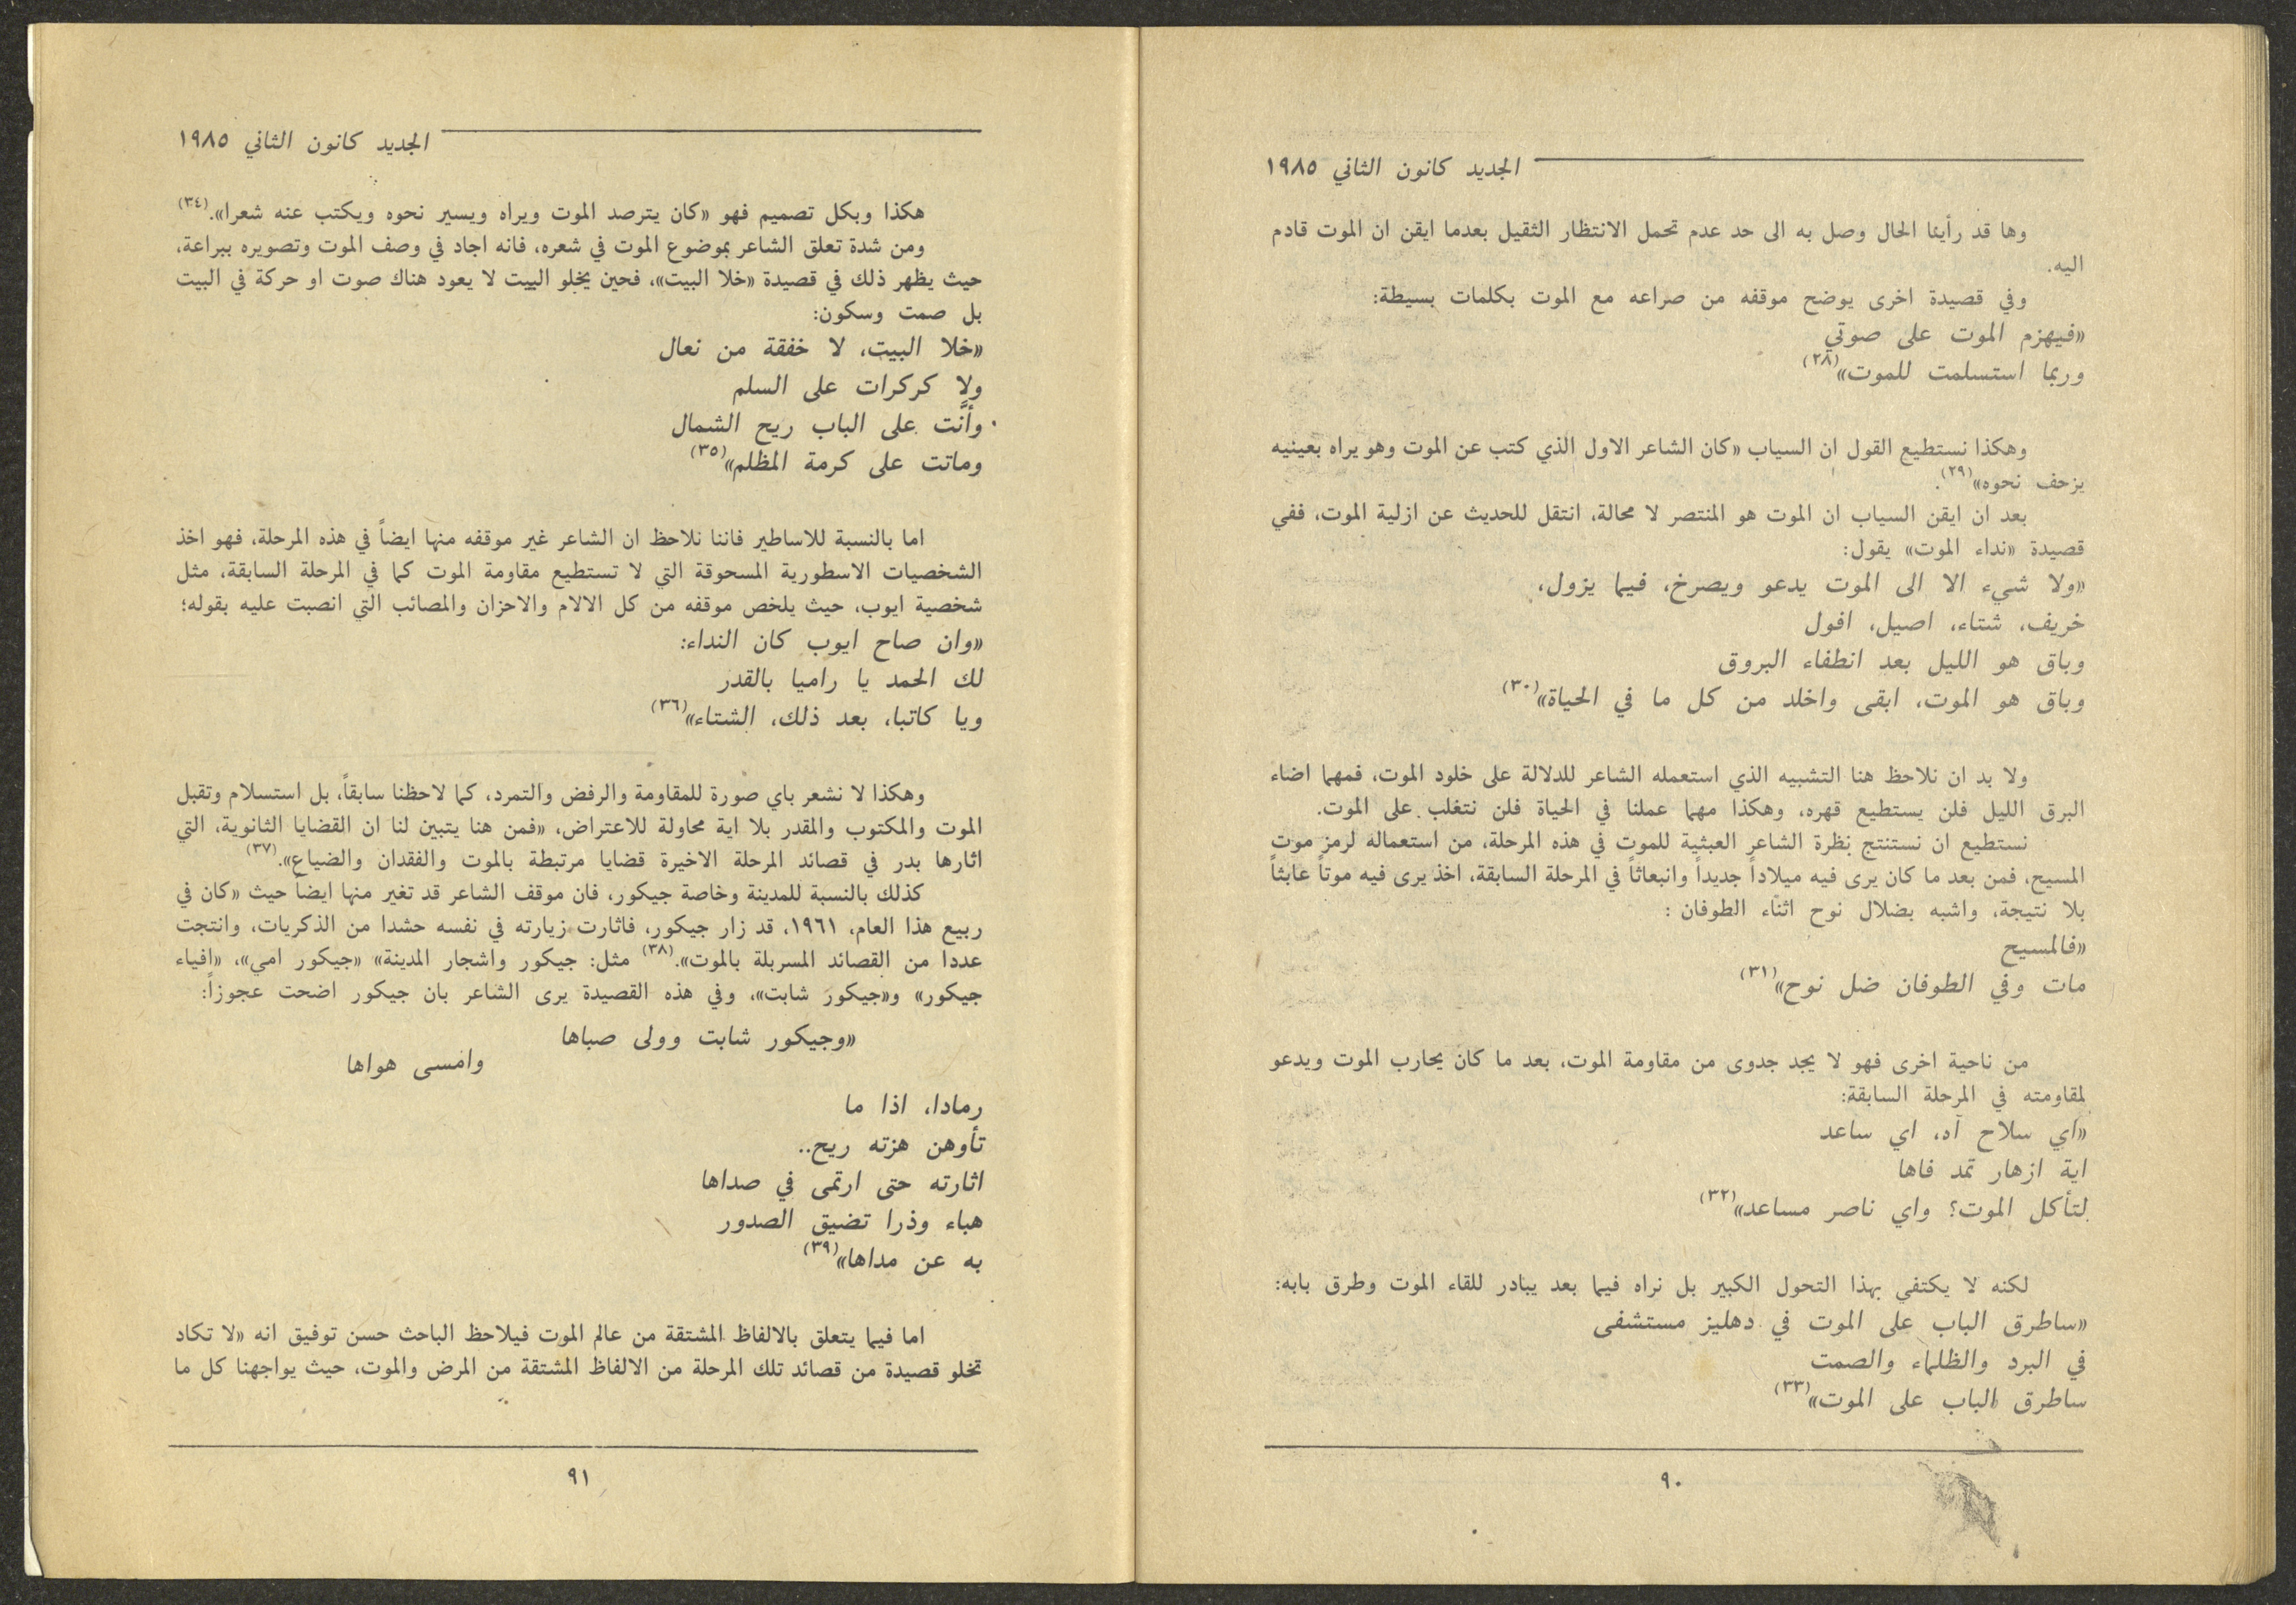 الجديد كانون الثاني ١٩٨٥
وها قد رأينا الحال وصل به الى حد عدم تحمل الانتظار الثقيل بعدما ايقن ان الموت قادم
اليه.
وفي قصيدة اخرى يوضح موقفه من صراعه مع الموت بكلمات بسيطة:
«فيهزم الموت على صوتي
وربما استسلمت للموت»(٢٨)
وهكذا نستطيع القول ان السياب «كان الشاعر الاول الذي كتب عن الموت وهو يراه بعينيه
يزحف نحوه»(٢٩).
بعد ان ايقن السياب ان الموت هو المنتصر لا محالة، انتقل للحديث عن ازلية الموت، ففي
قصيدة «نداء الموت» يقول:
«ولا شيء الا الى الموت يدعو ويصرخ، فيما يزول،
خريف، شتاء، اصيل، افول
وباق هو الليل بعد انطفاء البروق
وباق هو الموت، ابقى واخلد من كل ما في الحياة»(٣٠)
ولا بد ان نلاحظ هنا التشبيه الذي استعمله الشاعر للدلالة على خلود الموت، فمهما اضاء
البرق الليل فلن يستطيع قهره، وهكذا مهما عملنا في الحياة فلن نتغلب على الموت.
نستطيع ان نستنتج نظرة الشاعر العبثية للموت في هذه المرحلة، من استعماله لرمز موت
المسيح، فمن بعد ما كان يرى فيه ميلاداً جديداً وانبعاثاً في المرحلة السابقة، اخذ يرى فيه موتاً عابثاً
بلا نتيجة، واشبه بضلال نوح اثناء الطوفان :
«فالمسيح
مات وفي الطوفان ضل نوح»(٣١)
من ناحية اخرى فهو لا يجد جدوى من مقاومة الموت، بعد ما كان يحارب الموت ويدعو
لمقاومته في المرحلة السابقة:
«اي سلاح آه، اي ساعد
اية ازهار تمد فاها
لتأكل الموت؟ واي ناصر مساعد»(٣٢)
لكنه لا يكتفي بهذا التحول الكبير بل نراه فيما بعد يبادر للقاء الموت وطرق بابه:
«ساطرق الباب على الموت في دهليز مستشفى
في البرد والظلماء والصمت
ساطرق الباب على الموت»(٣٣)
٩٠
الجديد كانون الثاني ١٩٨٥
هكذا وبكل تصميم فهو «كان يترصد الموت ويراه ويسير نحوه ويكتب عنه شعرا».(٣٤)
ومن شدة تعلق الشاعر بموضوع الموت في شعره، فانه اجاد في وصف الموت وتصويره ببراعة،
حيث يظهر ذلك في قصيدة «خلا البيت»، فحين يخلو البيت لا يعود هناك صوت او حركة في البيت
بل صمت وسكون:
«خلا البيت، لا خفقة من نعال
ولا كركرات على السلم
وأنّت على الباب ريح الشمال
وماتت على كرمة المظلم»(٣٥)
اما بالنسبة للاساطير فاننا نلاحظ ان الشاعر غير موقفه منها ايضاً في هذه المرحلة، فهو اخذ
الشخصيات الاسطورية المسحوقة التي لا تستطيع مقاومة الموت كما في المرحلة السابقة، مثل
شخصية ايوب، حيث يلخص موقفه من كل الالام والاحزان والمصائب التي انصبت عليه بقوله؛
«وان صاح ايوب كان النداء:
لك الحمد يا راميا بالقدر
ويا كاتبا، بعد ذلك، الشتاء»(٣٦)
وهكذا لا نشعر باي صورة للمقاومة والرفض والتمرد، كما لاحظنا سابقاً، بل استسلام وتقبل
الموت والمكتوب والمقدر بلا اية محاولة للاعتراض، «فمن هنا يتبين لنا ان القضايا الثانوية، التي
اثارها بدر في قصائد المرحلة الاخيرة قضايا مرتبطة بالموت والفقدان والضياع».(٣٧)
كذلك بالنسبة للمدينة وخاصة جيكور، فان موقف الشاعر قد تغير منها ايضاً حيث «كان في
ربيع هذا العام، ١٩٦١، قد زار جيكور، فاثارت زيارته في نفسه حشدا من الذكريات، وانتجت
عددا من القصائد المسربلة بالموت».(٣٨) مثل: جيكور واشجار المدينة» «جيكور امي»، «افياء
جيكور» و«جيكور شابت»، وفي هذه القصيدة يرى الشاعر بان جيكور اضحت عجوزاً:
«وجيكور شابت وولى صباها
وامسى هواها
رمادا، اذا ما
تأوهن هزته ريح..
اثارته حتى ارتمى في صداها
هباء وذرا تضيق الصدور
به عن مداها»(٣٩)
اما فيما يتعلق بالالفاظ المشتقة من عالم الموت فيلاحظ الباحث حسن توفيق انه «لا تكاد
تخلو قصيدة من قصائد تلك المرحلة من الالفاظ المشتقة من المرض والموت، حيث يواجهنا كل ما
٩١